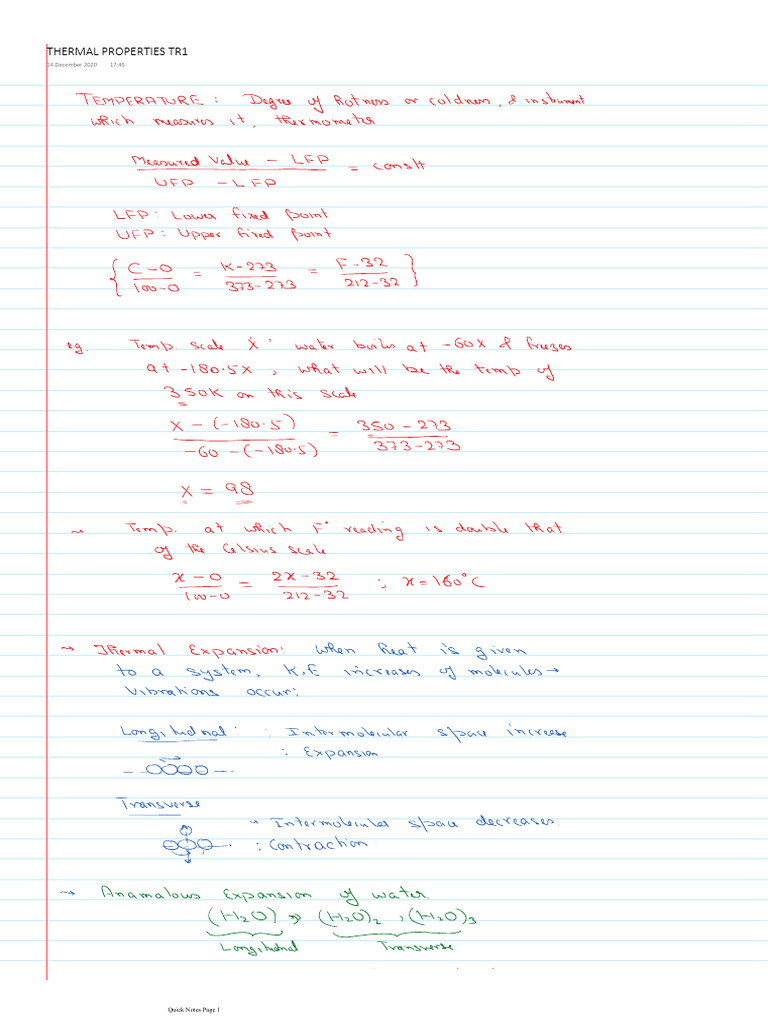 THERMAL PROPERTIES TR1
14 December 2020 17:45
TEMPERATURE : Degree of Hotness or coldness, & instrument
which measures it, thermometer
Measured Value - LFP / UFP - LFP = constt
LFP : Lower fixed point
UFP : Upper fixed point
{ C-0 / 100-0 = K-273 / 373-273 = F-32 / 212-32 }
eg. Temp. scale X, water boils at -60X & freezes
at -180.5X, what will be the temp of
350K on this scale
X-(-180.5) / -60-(-180.5) = 350-273 / 373-273
X = 98
→ Temp. at which F° reading is double that
of the Celsius scale
x-0 / 100-0 = 2x-32 / 212-32 ; x=160°C
→ Thermal Expansion: When heat is given
to a system, K.E increases of molecules →
Vibrations occur:
Longitudnal : : Intermolecular space increase
: Expansion
Transverse
→ Intermolecular space decreases
: Contraction
→ Anamalous Expansion of water
(H2O) ⇒ (H2O)2 , (H2O)3
Longitudnal Transverse
Quick Notes Page 1